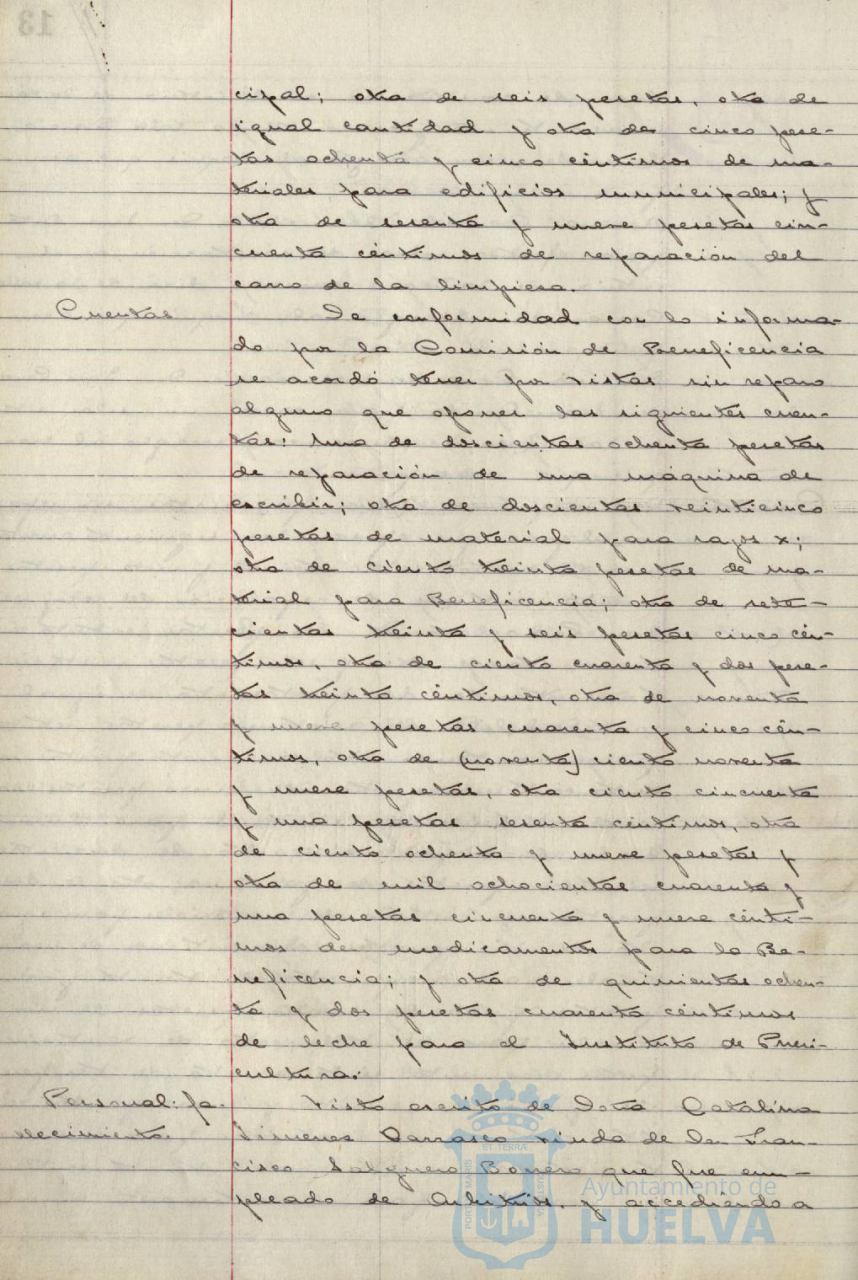 cipal; otra de seis pesetas, otra de
igual cantidad y otra de cinco pese-
tas ochenta y cinco céntimos de ma-
teriales para edificios municipales; y
otra de sesenta y nueve pesetas cin-
cuenta céntimos de reparación del
carro de la limpieza.
Cuentas De conformidad con lo informa-
do por la Comisión de Beneficencia
se acordó tener por vistas sin reparo
alguno que oponer las siguientes cuen-
tas: Una de doscientas ochenta pesetas
de reparación de una máquina de
escribir; otra de doscientas veinticinco
pesetas de material para rayos x;
otra de ciento treinta pesetas de ma-
terial para Beneficencia; otra de sete-
cientas treinta y seis pesetas cinco cén-
timos, otra de ciento cuarenta y dos pese-
tas treinta céntimos, otra de noventa
y nueve pesetas cuarenta y cinco cén-
timos, otra de (noventa) ciento noventa
y nueve pesetas, otra ciento cincuenta
y una pesetas sesenta céntimos, otra
de ciento ochenta y nueve pesetas y
otra de mil ochocientas cuarenta y
una pesetas cincuenta y nueve cénti-
mos de medicamentos para la Be-
neficencia; y otra de quinientas ochen-
ta y dos pesetas cuarenta céntimos
de leche para el Instituto de Pueri-
cultura.
Personal: fa- Visto escrito de Doña Catalina
llecimiento. Jimenez Carrasco viuda de Don Fran-
cisco Salguero Borrero que fue em-
pleado de Arbitrios, y accediendo a
Ayuntamiento de
HUELVA